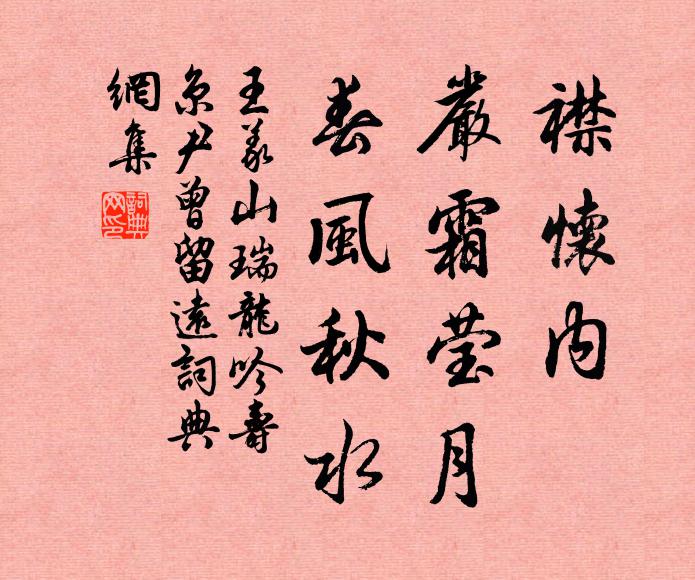 襟懷內
嚴霜瑩月
春風秋水
王義山瑞龍吟壽
京尹曾留遠詞典
網集
詞典
网印